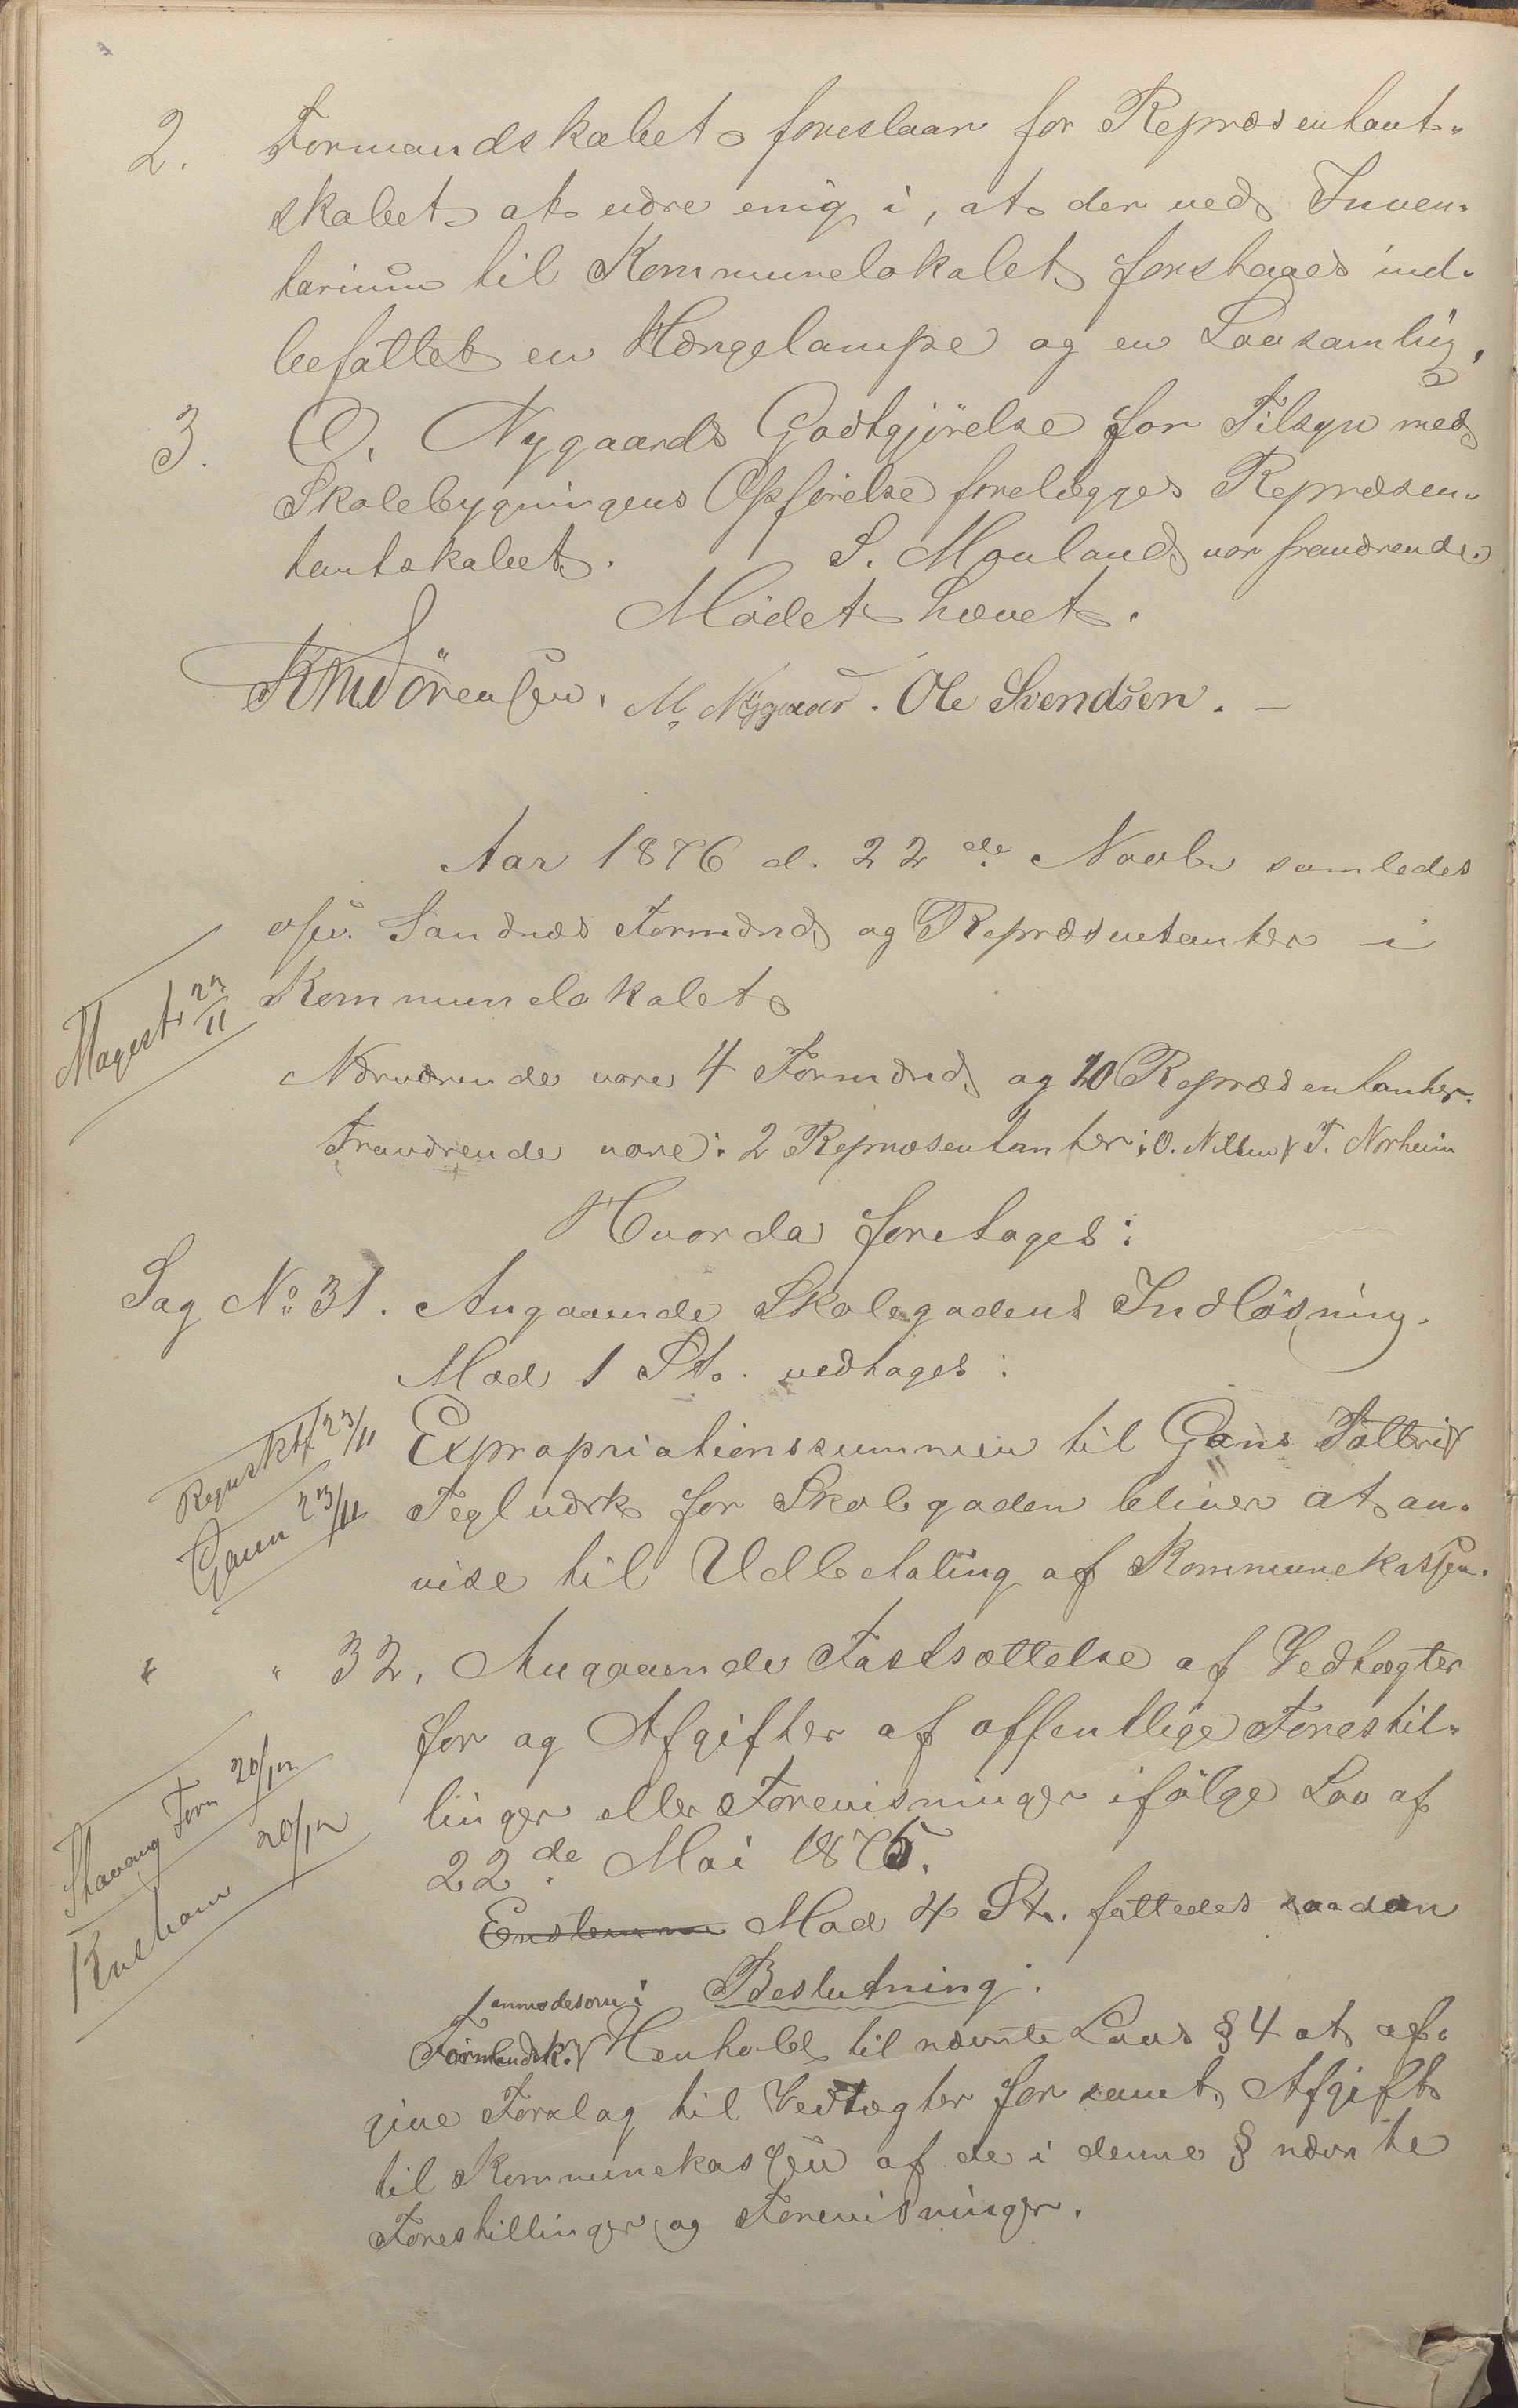 2. Formandskabet foreslaar for Repræsentant-
skabet at være enig i, at der ved Inven-
tarium til Kommunelokalet forstaaes ind-
befattet en Hængelampe og en Lovsamling.
3. O. Nygaards Godtgjörelse for Tilsyn med
Skolebygningens Opförelse forelægges Repræsen-
tantskabet. S. Mauland var fraværende.
Mödet hævet.
Sörensen. M. Nygaard. Ole Svendsen. -
Aar 1876 d. 22de Novbr samledes
Sandnæs Formænd og Repræsentanter i
Kommunelokalet
Magistr 23/11
Nærværende vare 4 Formænd og 10 Repræsentanter.
Fraværende vare: 2 Repræsentanter: O. Nilsen & T. Norheim
Hvorda foretages:
Sag No 31. Angaaende Skolegadens Indlösning.
Mod 1 St. vedtages:
Regnskf 23/11 Expropriationssummen til Gans Potteri &
Gann 23/11 Teglværk for Skolegaden bliver at an-
vise til Udbetaling af Kommunekassen.
" " 32. Angaaende Fastsættelse af Vedtægter
for og Afgifter af offentlige Forestil-
Stavang Form 20/12 linger eller Forevisninger ifölge Lov af
22de Mai 1875.
20/12
Enstemm Mod 4 St. fattedes saadan
Beslutning:
anmodes om i
Formandsk. Henhold til nævnte Lovs § 4 at af-
give Forslag til Vedtægter for samt Afgift
til Kommunekassen af de i denne § nævnte
Forestillinger og Forevisninger.